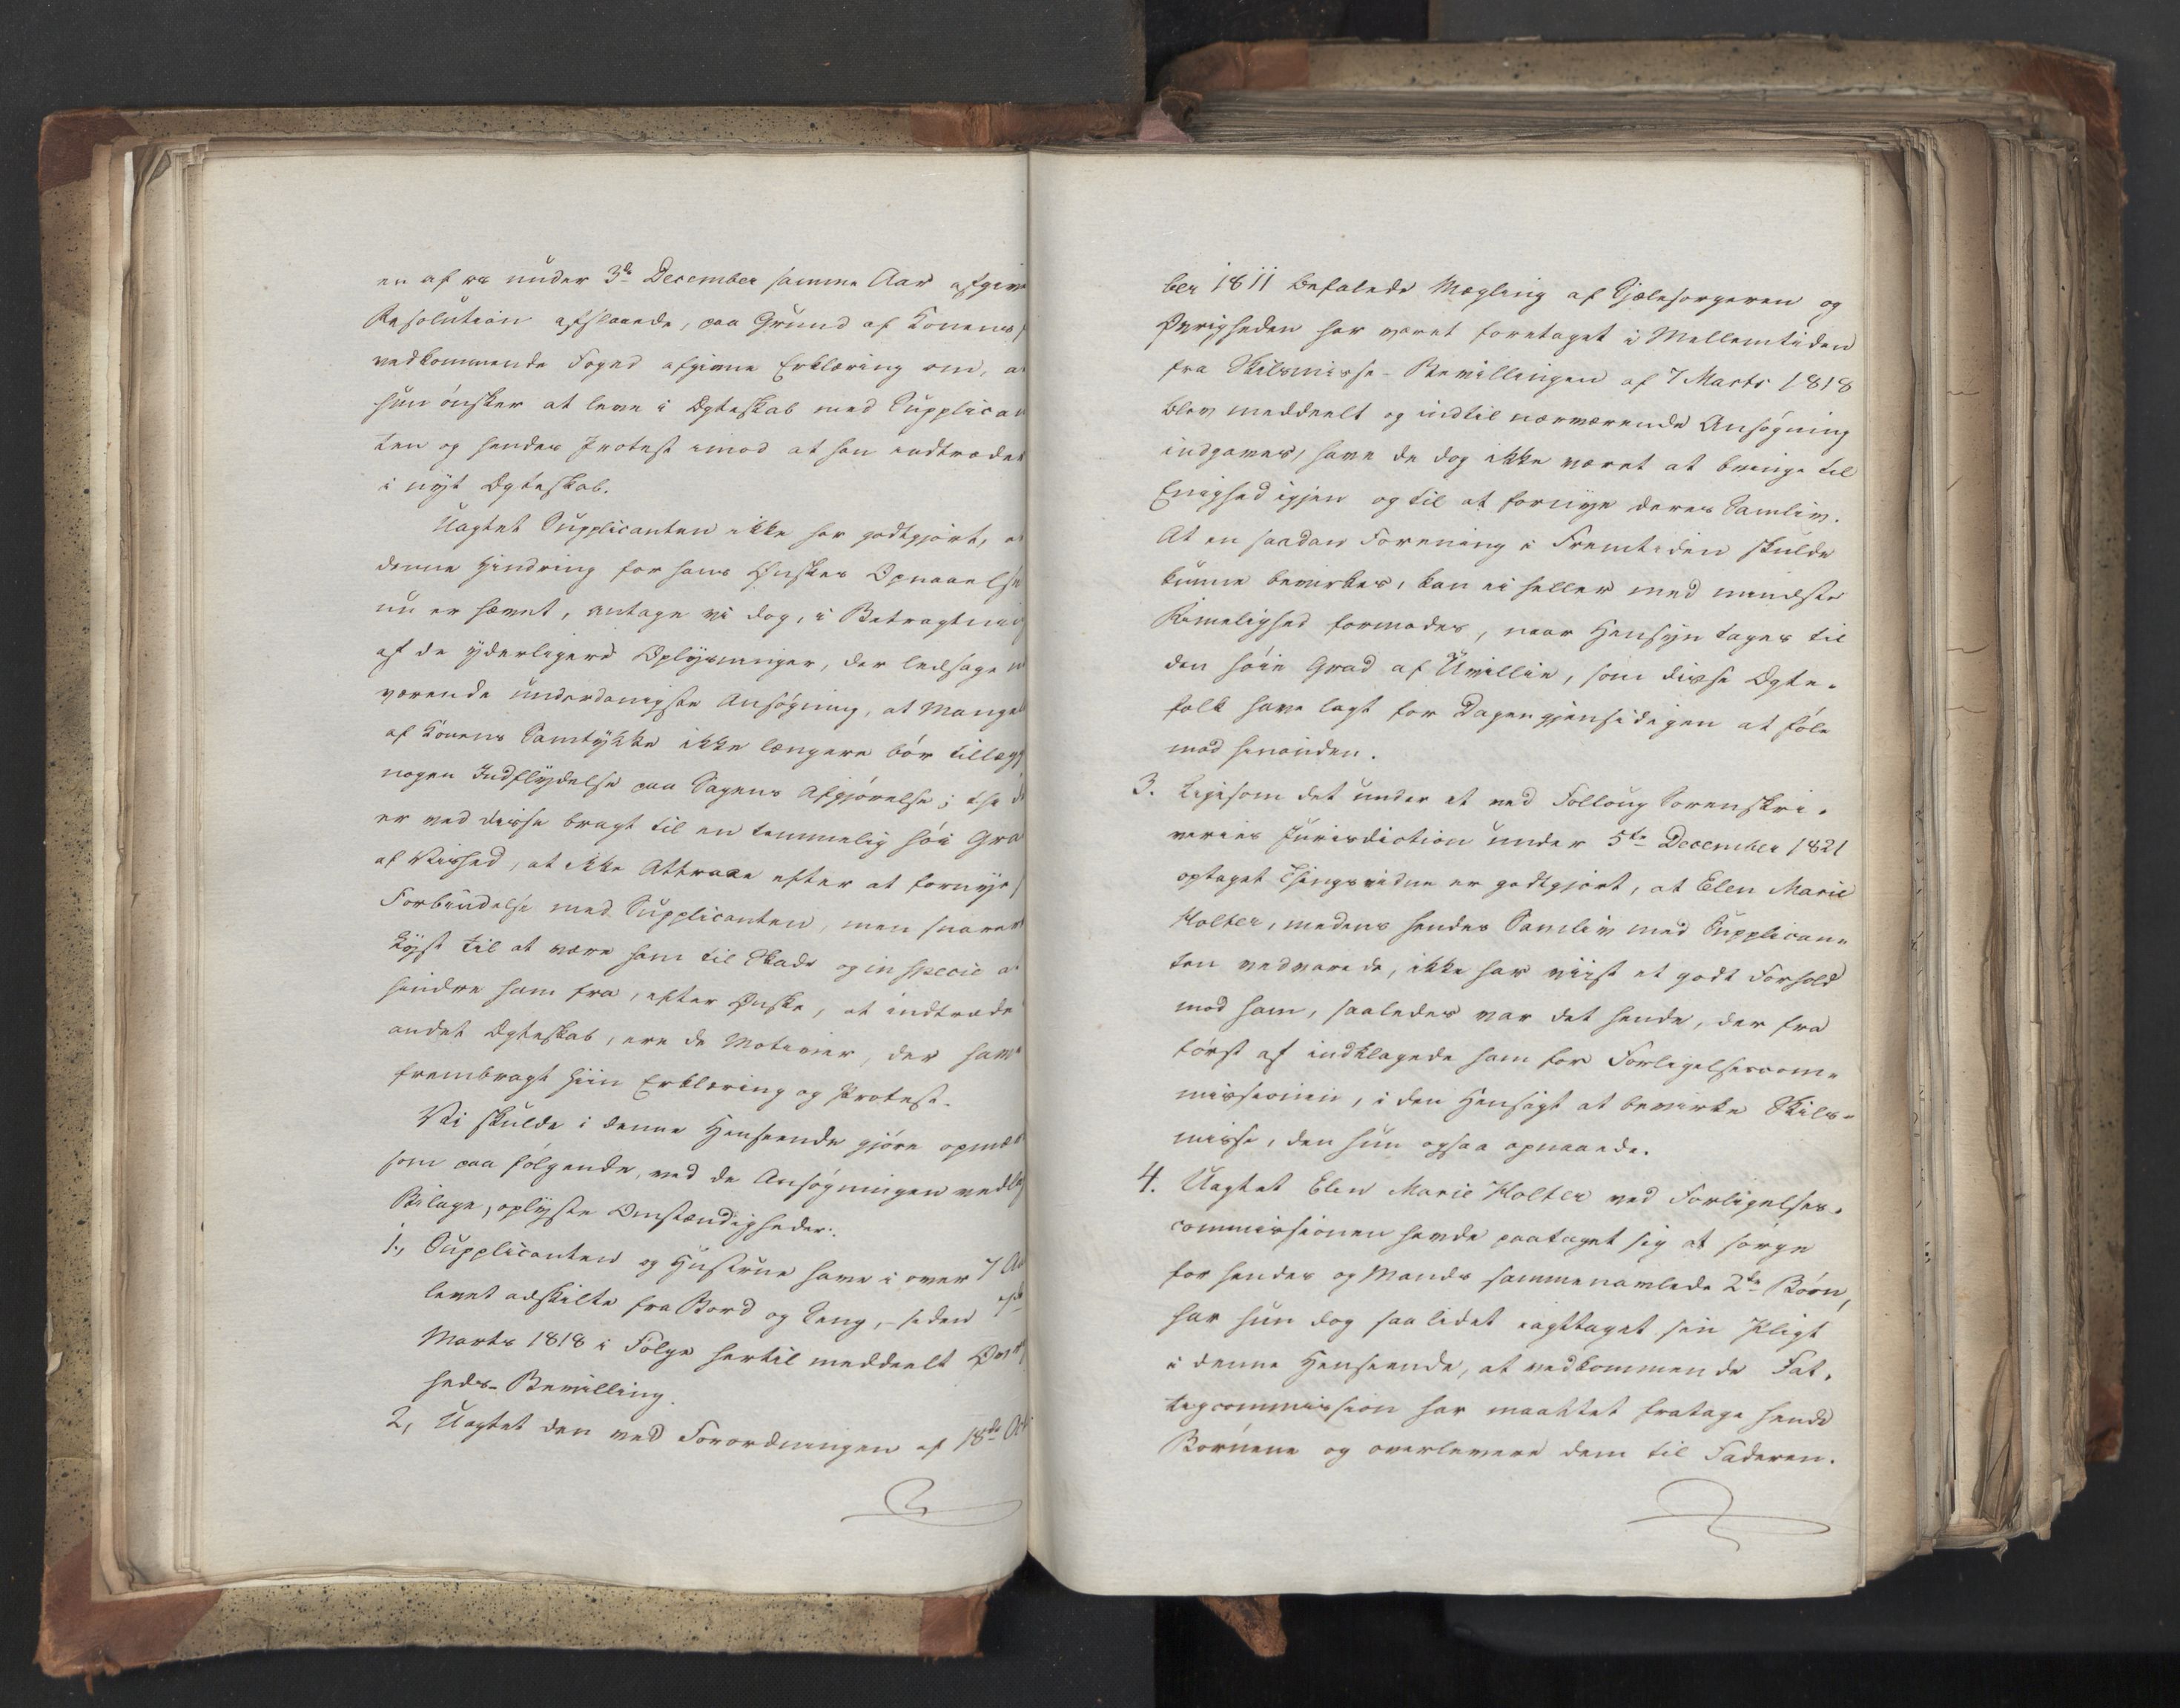 en af os under 3de December samme Aar afgiven
Resolution afslaaede, paa Grund af Konens
vedkommende Foged afgivne Erklæring om, at
hun ønsker at leve i Ægteskab med Supplican
ten og hendes Protest imod at han indtræder
i nyt Ægteskab.
Uagtet Supplicanten ikke har godtgjort, at
denne Hindring for hans Ønskes Opnaaelse
nu er hævet, antage vi dog, i Betragtning
af de yderligere Oplysninger, der ledsage
værende underdanigste Ansøgning, at Mangel
af Konens Samtykke ikke længere bør tillægges
nogen Indflydelse paa Sagens Afgjørelse; thi
er ved disse bragt til en temmelig høi Grad
af Vished, at ikke Attraae efter at fornye
Forbindelse med Supplicanten, men snarere
Lyst til at være ham til Skade og in specie at
hindre ham fra, efter Ønske, at indtræde
andet Ægteskab, ere de Motiver, der have
frembragt hiin Erklæring og Protest.
Vi skulde i denne Henseende gjøre opmærk
som paa følgende, ved de Ansøgningen vedlagte
Bilage, oplyste Omstændigheder:
1., Supplicanten og Hustrue have i over 7 Aar
levet adskilte fra Bord og Seng, - siden 7de
Marts 1818 i Følge hertil meddeelt Øvrig
heds-Bevilling.
2, Uagtet den ved Forordningen af 18de Octo
ber 1811 befalede Mægling af Sjælesørgeren og
Øvrigheden har været foretaget i Mellemtiden
fra Skilsmisse-Bevillingen af 7 Marts 1818
blev meddeelt og indtil nærværende Ansøgning
indgaves, have de dog ikke været at bringe til
Enighed igjen og til at fornye deres Samliv.
At en saadan Forening i Fremtiden skulde
kunne bevirkes, kan ei heller med mindste
Rimelighed formodes, naar Hensyn tages til
den høie Grad af Uvillie, som disse Ægte-
folk have lagt for Dagen gjensidigen at føle
mod hinanden.
3. Ligesom det under et ved Follougs Sorenskri-
veries Jurisdiction under 5te December 1821
optaget Thingsvidne er godtgjort, at Elen Marie
Holter, medens hendes Samliv med Supplican-
ten vedvarede, ikke har viist et godt Forhold
mod ham, saaledes var det hende, der fra
først af indklagede ham for Forligelsescom-
missionen, i den Hensigt at bevirke Skils-
misse, den hun ogsaa opnaaede.
4. Uagtet Elen Marie Holter ved Forligelses-
commissionen havde paataget sig at sørge
for hendes og Mands sammenavlede 2de Børn,
har hun dog saa lidet iagttaget sin Pligt
i denne Henseende, at vedkommende Fat-
tigcommission har maattet fratage hende
Børnene og overlevere dem til Faderen.